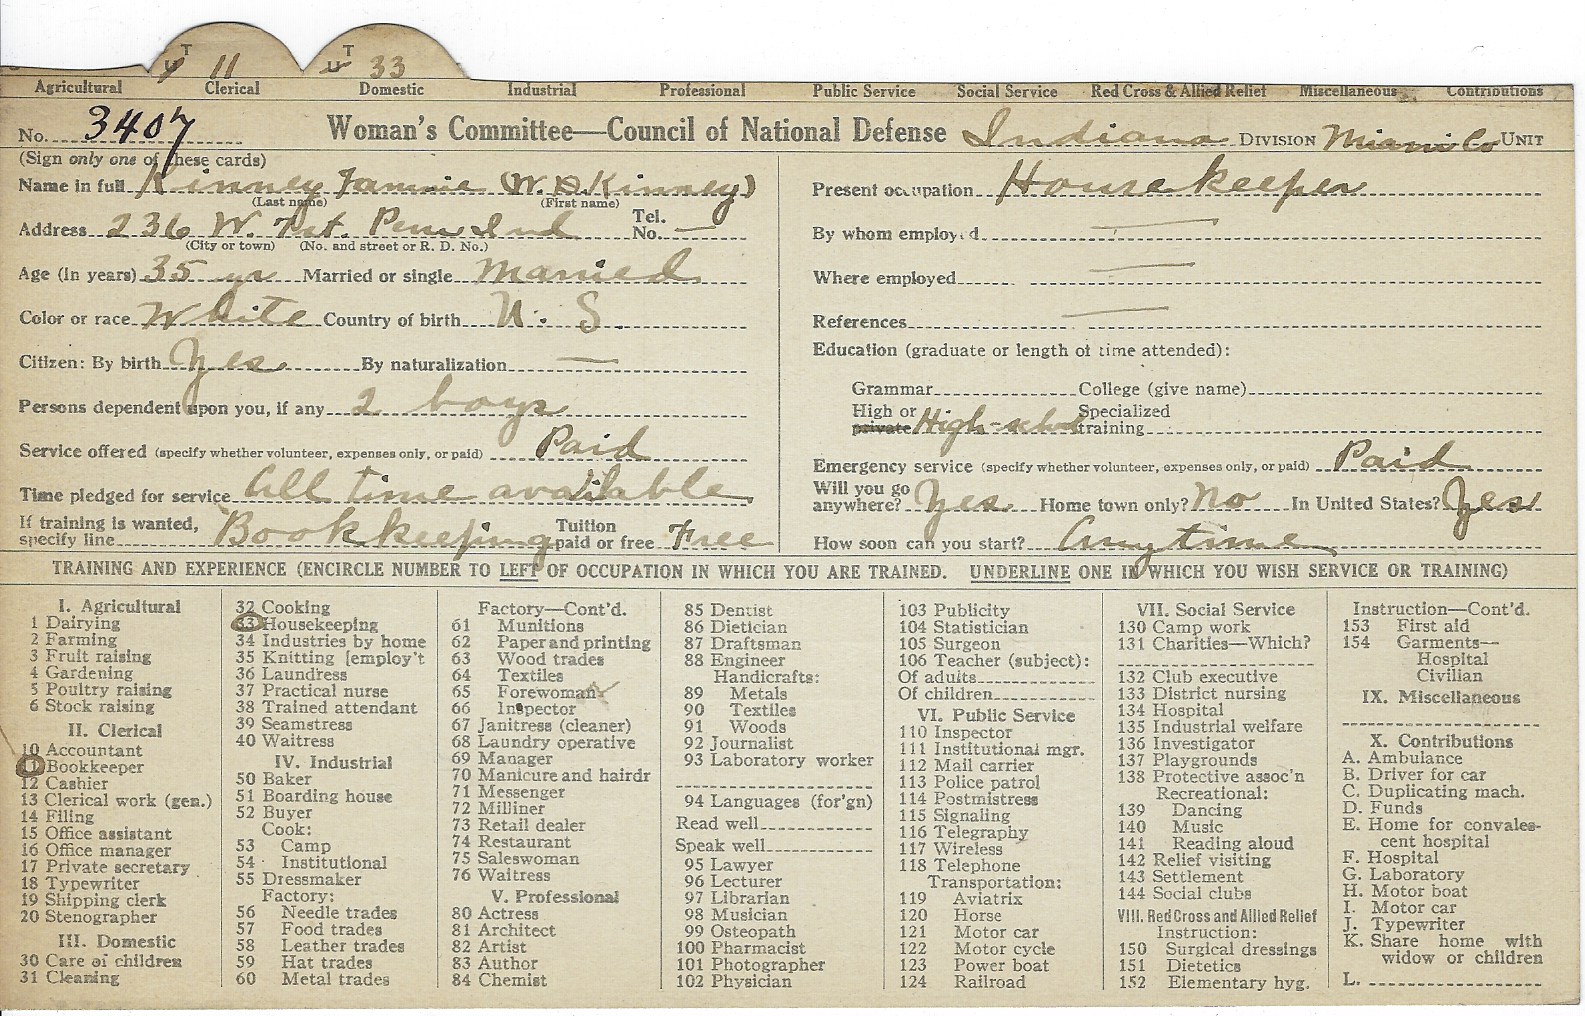 T 11 T 33
Agricultural Clerical Domestic Industrial Professional Public Service Social Service Red Cross & Allied Relief Miscellaneous Contributions
No. 3407 Woman's Committee—Council of National Defense Indiana DIVISION Miami Co UNIT
(Sign only one of these cards)
Name in full Kinney Fannie (W. D. Kinney)
(Last name) (First name)
Address 236 W. 7 st. Peru Ind Tel. No. —
(City or town) (No. and street or R. D. No.)
Age (in years) 35 yr Married or single Married
Color or race White Country of birth U. S.
Citizen: By birth Yes By naturalization —
Persons dependent upon you, if any 2 boys
Service offered (specify whether volunteer, expenses only, or paid) Paid
Time pledged for service All time available
If training is wanted, specify line Bookkeeping Tuition paid or free Free
Present occupation Housekeeper
By whom employed —
Where employed —
References —
Education (graduate or length of time attended):
Grammar College (give name)
High or private High-school Specialized training
Emergency service (specify whether volunteer, expenses only, or paid) Paid
Will you go anywhere? Yes Home town only? No In United States? Yes
How soon can you start? Any time
TRAINING AND EXPERIENCE (ENCIRCLE NUMBER TO LEFT OF OCCUPATION IN WHICH YOU ARE TRAINED. UNDERLINE ONE IN WHICH YOU WISH SERVICE OR TRAINING)
I. Agricultural
1 Dairying
2 Farming
3 Fruit raising
4 Gardening
5 Poultry raising
6 Stock raising
II. Clerical
10 Accountant
11 Bookkeeper
12 Cashier
13 Clerical work (gen.)
14 Filing
15 Office assistant
16 Office manager
17 Private secretary
18 Typewriter
19 Shipping clerk
20 Stenographer
III. Domestic
30 Care of children
31 Cleaning
32 Cooking
33 Housekeeping
34 Industries by home
35 Knitting [employ't
36 Laundress
37 Practical nurse
38 Trained attendant
39 Seamstress
40 Waitress
IV. Industrial
50 Baker
51 Boarding house
52 Buyer
Cook:
53 Camp
54 Institutional
55 Dressmaker
Factory:
56 Needle trades
57 Food trades
58 Leather trades
59 Hat trades
60 Metal trades
Factory—Cont'd.
61 Munitions
62 Paper and printing
63 Wood trades
64 Textiles
65 Forewoman
66 Inspector
67 Janitress (cleaner)
68 Laundry operative
69 Manager
70 Manicure and hairdr
71 Messenger
72 Milliner
73 Retail dealer
74 Restaurant
75 Saleswoman
76 Waitress
V. Professional
80 Actress
81 Architect
82 Artist
83 Author
84 Chemist
85 Dentist
86 Dietician
87 Draftsman
88 Engineer
Handicrafts:
89 Metals
90 Textiles
91 Woods
92 Journalist
93 Laboratory worker
94 Languages (for'gn)
Read well
Speak well
95 Lawyer
96 Lecturer
97 Librarian
98 Musician
99 Osteopath
100 Pharmacist
101 Photographer
102 Physician
103 Publicity
104 Statistician
105 Surgeon
106 Teacher (subject):
Of adults
Of children
VI. Public Service
110 Inspector
111 Institutional mgr.
112 Mail carrier
113 Police patrol
114 Postmistress
115 Signaling
116 Telegraphy
117 Wireless
118 Telephone
Transportation:
119 Aviatrix
120 Horse
121 Motor car
122 Motor cycle
123 Power boat
124 Railroad
VII. Social Service
130 Camp work
131 Charities—Which?
132 Club executive
133 District nursing
134 Hospital
135 Industrial welfare
136 Investigator
137 Playgrounds
138 Protective assoc'n
Recreational:
139 Dancing
140 Music
141 Reading aloud
142 Relief visiting
143 Settlement
144 Social clubs
VIII. Red Cross and Allied Relief
Instruction:
150 Surgical dressings
151 Dietetics
152 Elementary hyg.
Instruction—Cont'd.
153 First aid
154 Garments—
Hospital
Civilian
IX. Miscellaneous
X. Contributions
A. Ambulance
B. Driver for car
C. Duplicating mach.
D. Funds
E. Home for convales-
cent hospital
F. Hospital
G. Laboratory
H. Motor boat
I. Motor car
J. Typewriter
K. Share home with
widow or children
L.